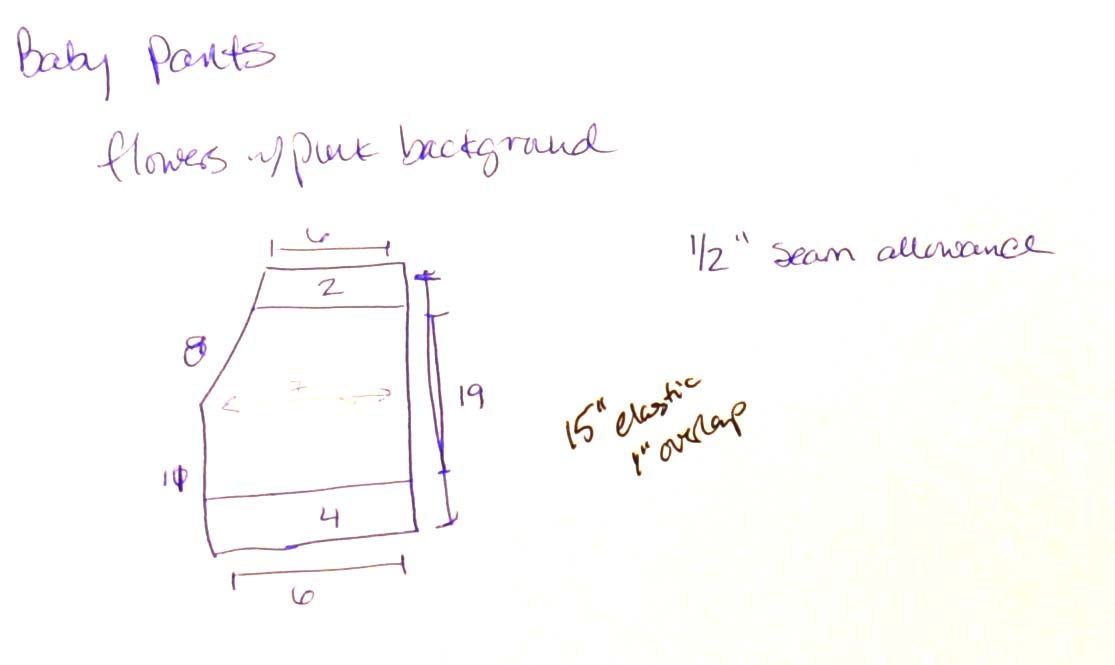 Baby Pants
flowers w/pink background
1/2" seam allowance
6
2
8
7
19
15" elastic
1" overlap
4
6